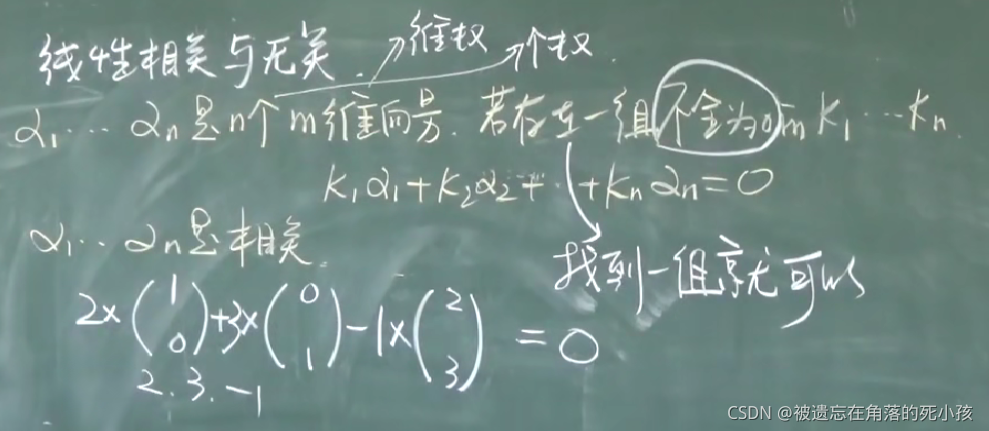 线性相关与无关. →维数 →个数.
α₁⋯αₙ是n个m维向量. 若存在一组不全为0的k₁⋯kₙ.
k₁α₁+k₂α₂+⋯+kₙαₙ=0
α₁⋯αₙ是相关.
找到一组就可以
2×(1 0)+3×(0 1)-1×(2 3)=0
2.3.-1
CSDN @被遗忘在角落的死小孩